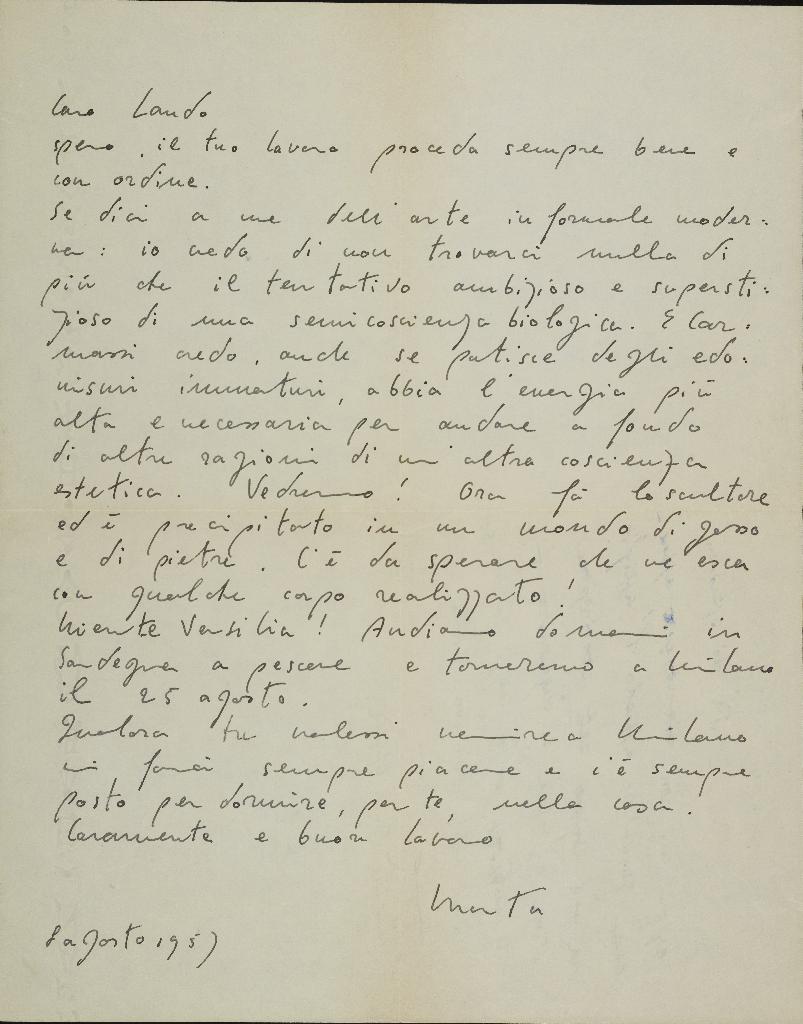 Caro Lando
spero, il tuo lavoro proceda sempre bene e
con ordine.
Se dici a me dell'arte informale moder-
na: io credo di non trovarci nulla di
più che il tentativo ambizioso e supersti-
zioso di una semicoscienza biologica. E Car-
massi credo, anche se patisce degli edo-
nismi immaturi, abbia l'energia più
alta e necessaria per andare a fondo
di altre ragioni di un'altra coscienza
estetica. Vedremo! Ora fà lo scultore
ed è precipitato in un mondo di gesso
e di pietre. C'è da sperare che ne esca
con qualche corpo realizzato!
Niente Versilia! Andiamo domani in
Sardegna a pescare e torneremo a Milano
il 25 agosto.
Qualora tu volessi venire a Milano
mi farai sempre piacere e c'è sempre
posto per dormire, per te, nella casa.
Caramente e buon lavoro
8 agosto 1957